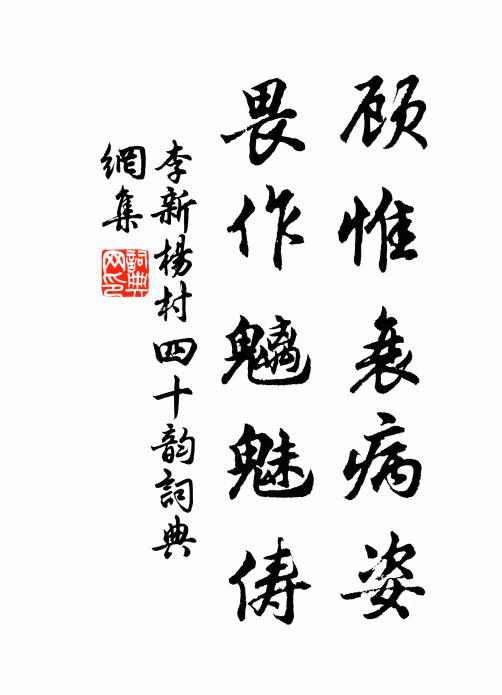 顾惟衰病姿
畏作魑魅俦
李新杨村四十韵词典
网集
词典网印